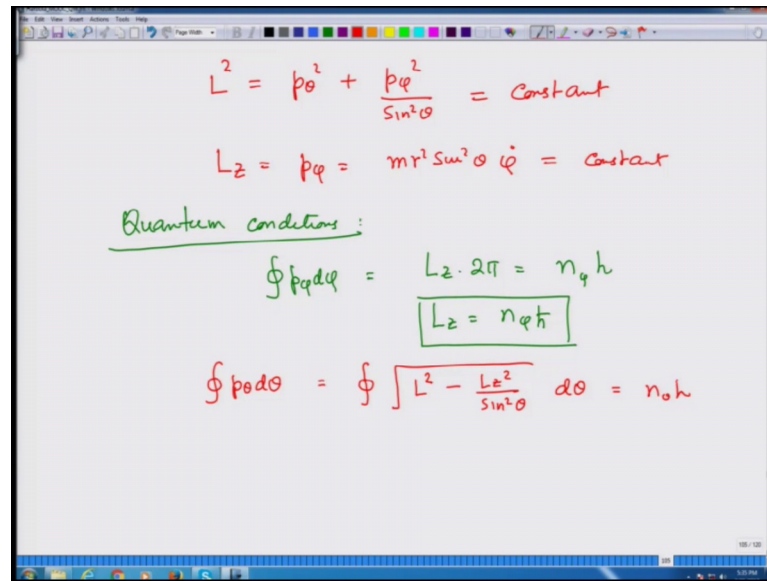 File Edit View Insert Actions Tools Help
Page Width
L² = pθ² + pφ²/sin²θ = constant
Lz = pφ = mr² sin²θ φ̇ = constant
Quantum conditions :
∮pφdφ = Lz · 2π = nφh
Lz = nφħ
∮pθdθ = ∮ √(L² − Lz²/sin²θ) dθ = nθh
105 / 120
105
5:35 PM